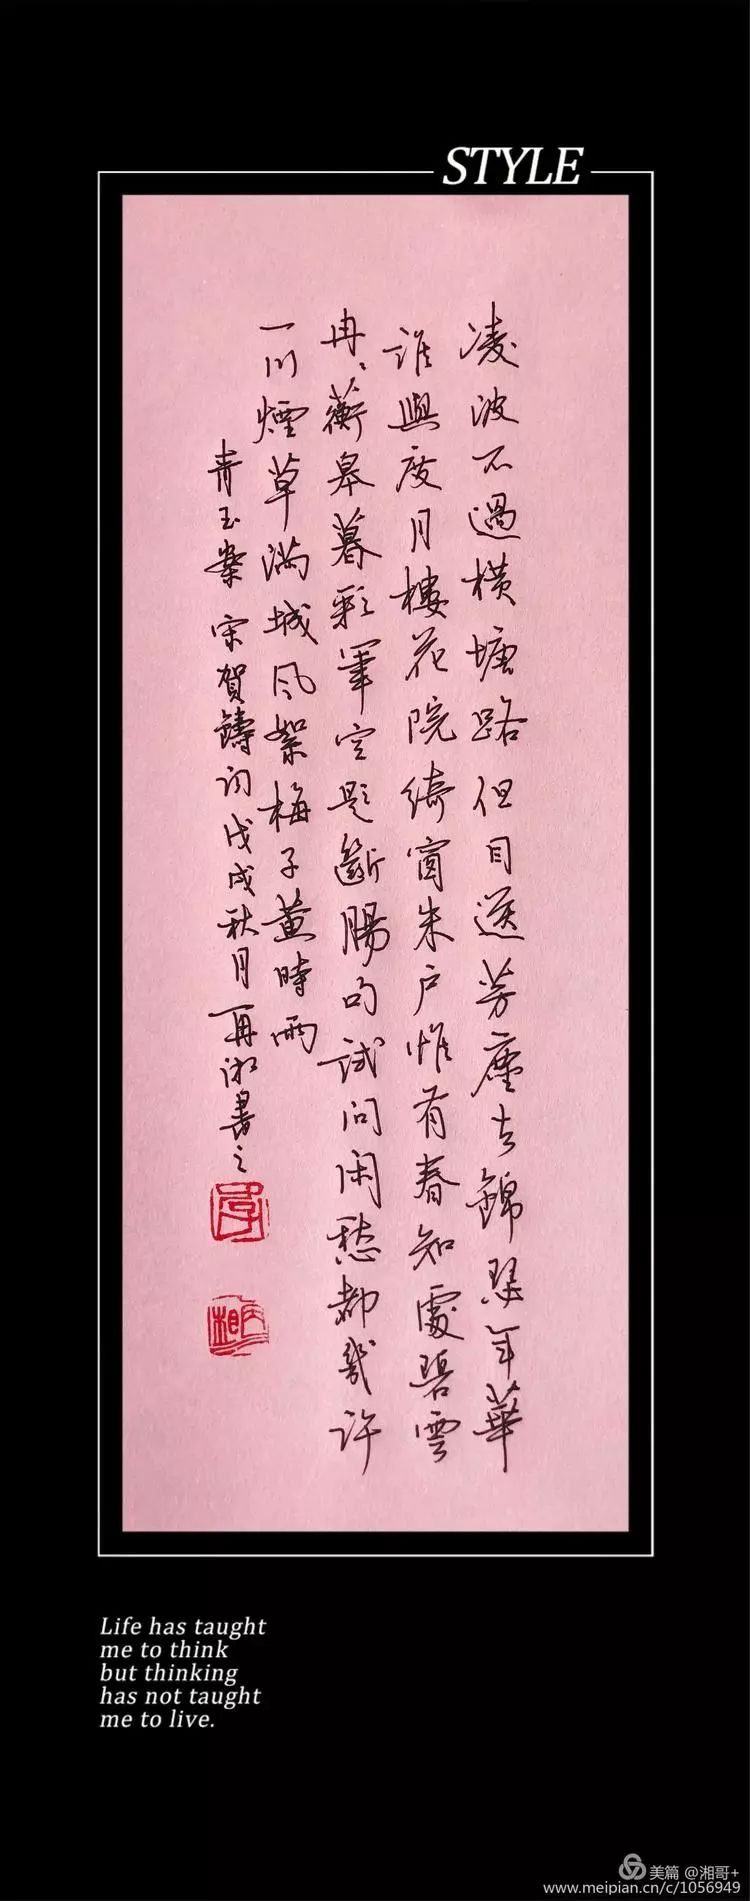 STYLE
凌波不過横塘路但目送芳塵去錦瑟年華
誰與度月樓花院綺窗朱户惟有春知處碧雲
冉〻蘅皋暮彩筆空題斷腸句試问闲愁都幾许
一川煙草满城风絮梅子黄時雨
青玉案 宋賀鑄词戊戌秋月再湘書之
Life has taught
me to think
but thinking
has not taught
me to live.
美篇 @湘哥+
www.meipian.cn/c/1056949